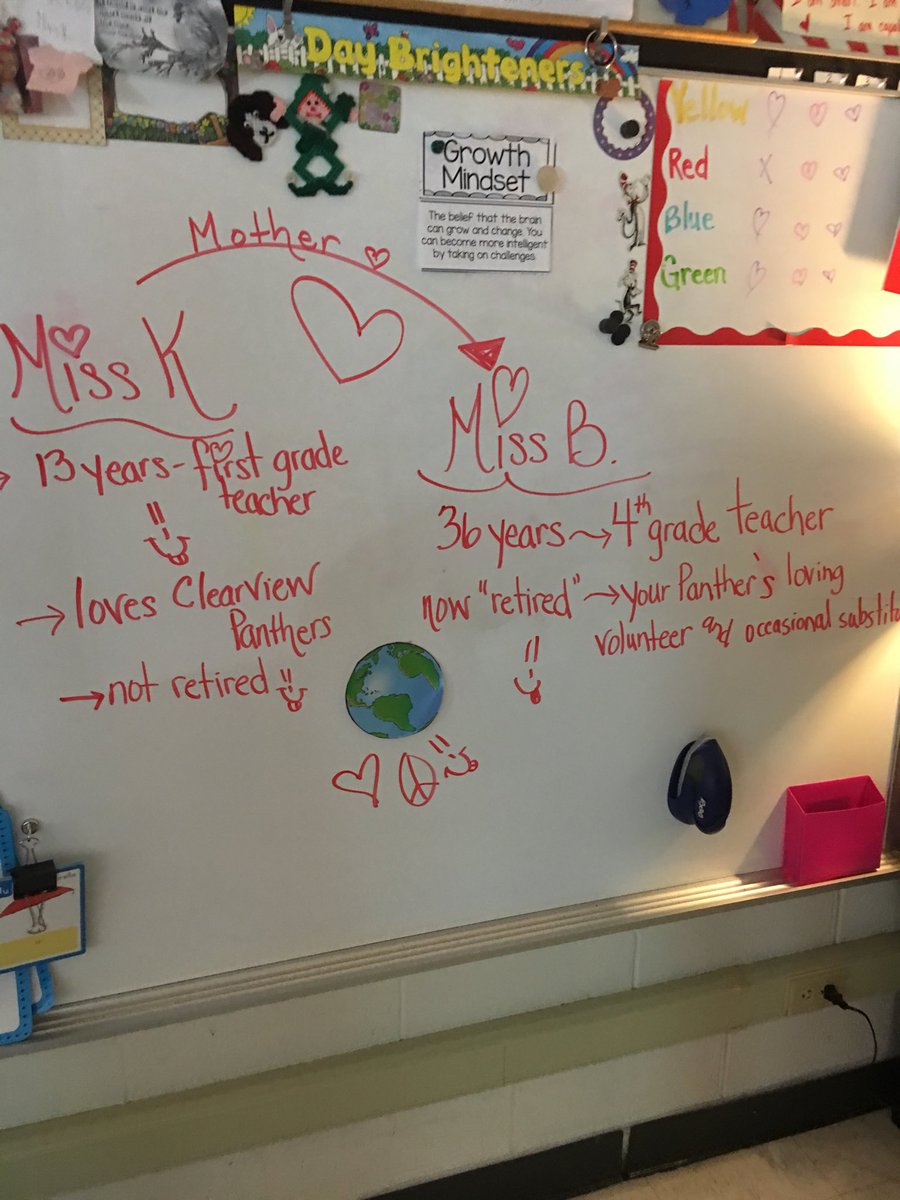 Day Brighteners
I am cap
Growth
Mindset
The belief that the brain
can grow and change. You
can become more intelligent
by taking on challenges.
Yellow
Red
Blue
Green
Mother
Miss K
13 years - first grade
teacher
→ loves Clearview
Panthers
→ not retired
Miss B.
36 years → 4th grade teacher
now "retired" → your Panther's loving
volunteer and occasional substitu